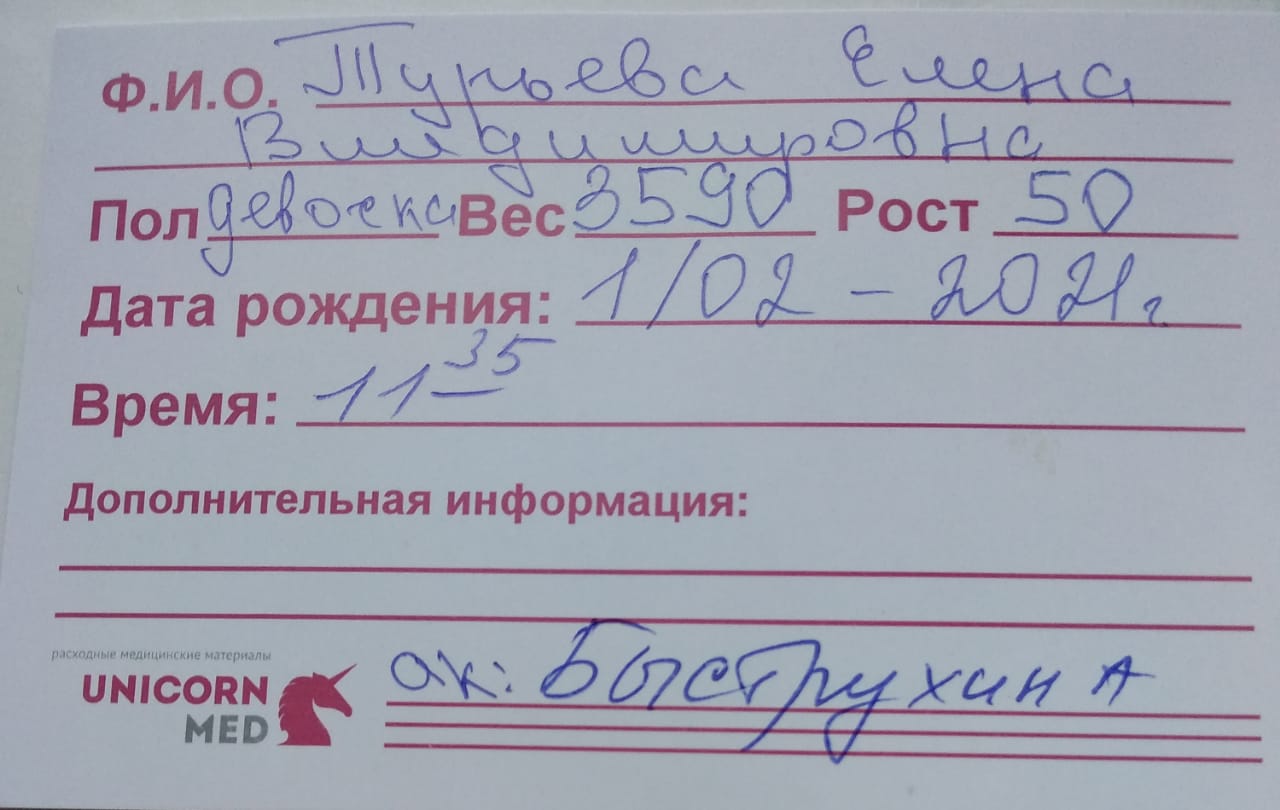 Ф.И.О. Турьева Елена
Владимировна
Пол девочка Вес 3590 Рост 50
Дата рождения: 1/02 - 2021г
Время: 11 35
Дополнительная информация:
расходные медицинские материалы
UNICORN
MED
ак: Быструхин А